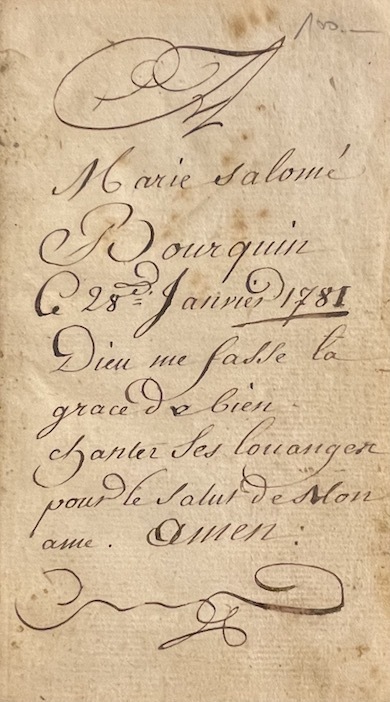 100.—
Marie Salomé
Bourquin
Le 28.d Janvier 1781
Dieu me fasse la
grace de bien
chanter Ses louanges
pour le Salut de Mon
ame. amen: